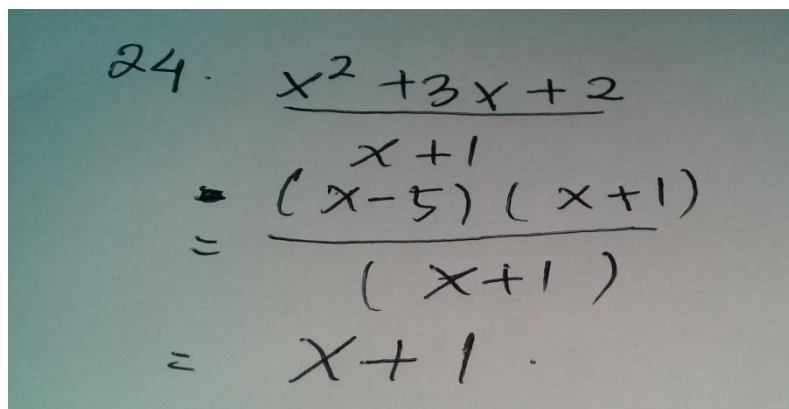 24. x² + 3x + 2
x + 1
= (x - 5) (x + 1)
(x + 1)
= x + 1.